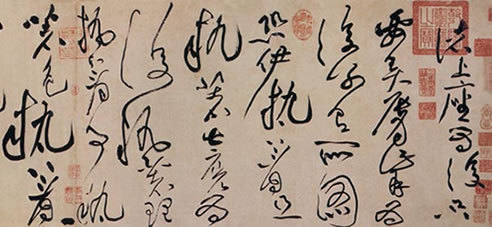 諸上座為復只
要弄唇觜為
復別有所圖
恐伊執著且
執著甚麼為
復執著理
執著事執
著色執著